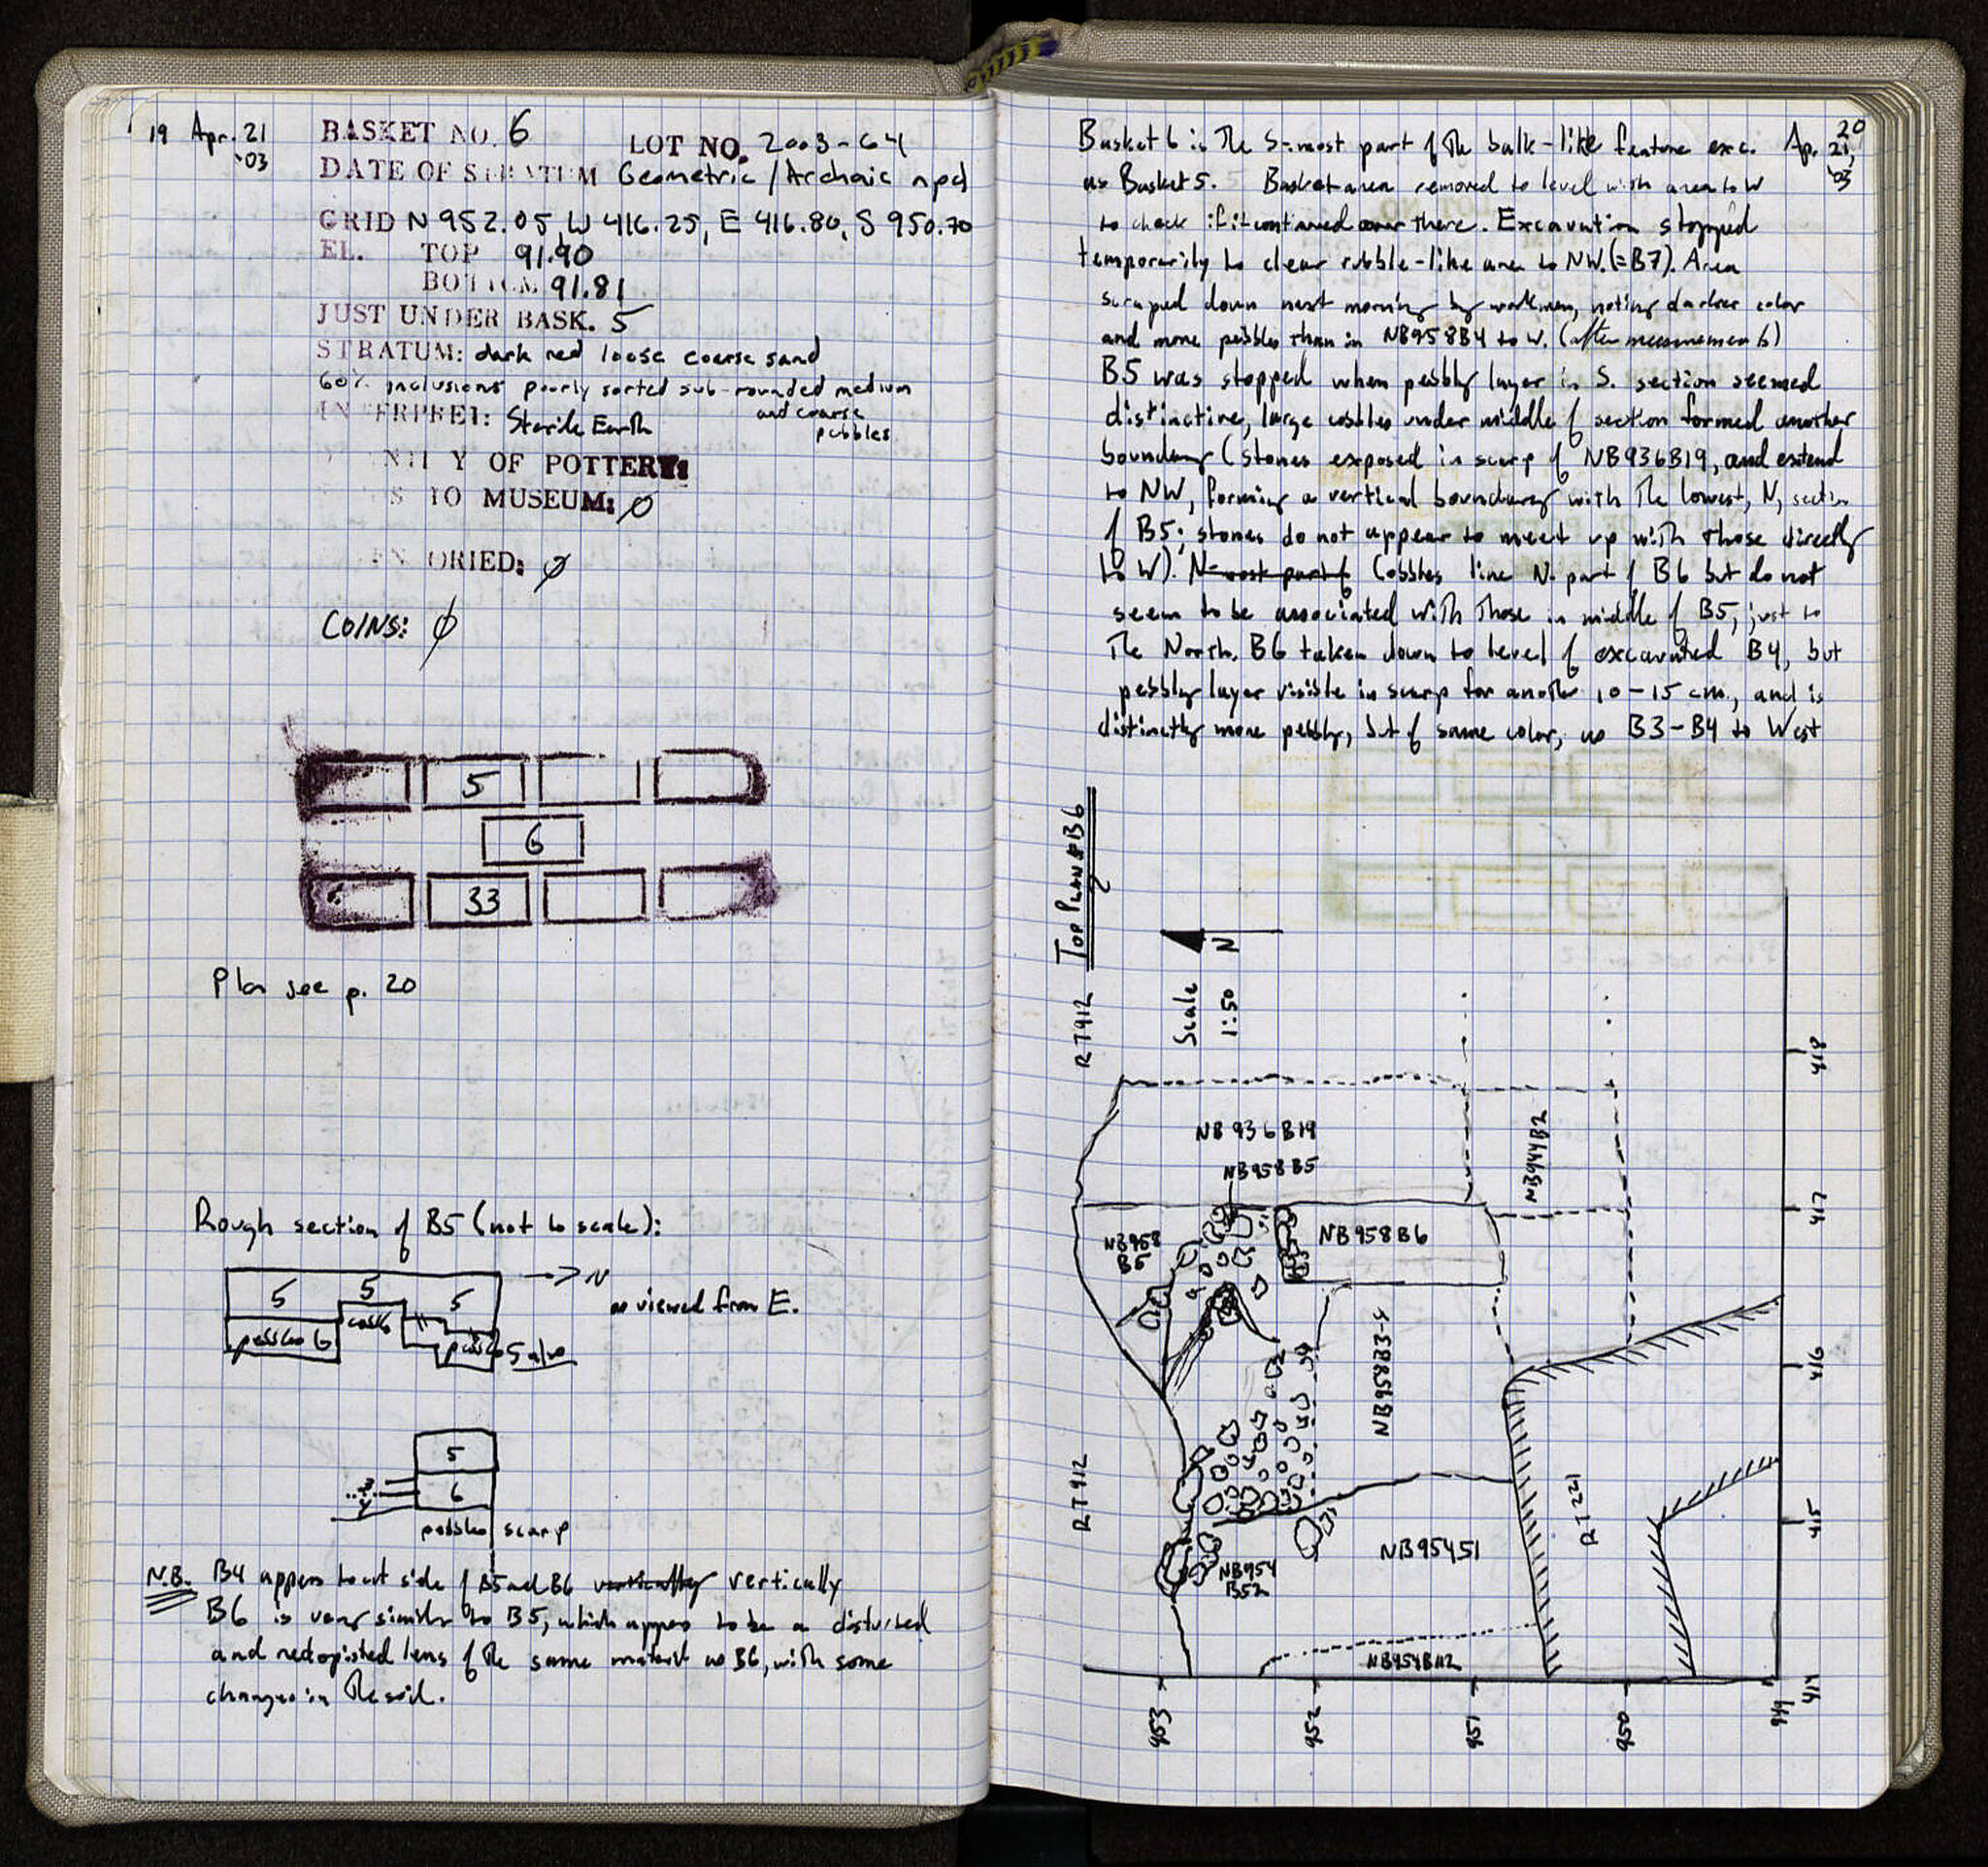 19 Apr. 21 '03
BASKET NO. 6
LOT NO. 2003-64
DATE OF STRATUM Geometric / Archaic npd
GRID N 952.05, W 416.25, E 416.80, S 950.70
EL. TOP 91.90
BOTTOM 91.81
JUST UNDER BASK. 5
STRATUM: dark red loose coarse sand
60% inclusions poorly sorted sub-rounded medium
and coarse
pebbles
INTERPRET: Sterile Earth
QUANTITY OF POTTERY:
TO MUSEUM: Ø
ORIED: Ø
COINS: Ø
5
6
33
Plan see p. 20
Rough section of B5 (not to scale):
5 5 5
→ N
as viewed from E.
pebbles 6
5 also
5
6
pebbles scarp
N.B. B4 appears to cut side of B5 and B6 vertically vertically
B6 is very similar to B5, which appears to be a disturbed
and redeposited lens of the same material as B6, with some
changes in the soil.
20
Ap. 21, '03
Basket 6 is the S-most part of the balk-like feature exc.
as Basket 5. Basket area removed to level with area to W
to check if it continued over there. Excavation stopped
temporarily to clear rubble-like area to NW. (=B7). Area
scraped down next morning by workmen, noting darker color
and more pebbles than in NB958B4 to W. (after measurements)
B5 was stopped when pebbly layer in S. section seemed
distinctive, large cobbles under middle of section formed another
boundary (stones exposed in scarp of NB936B19, and extend
to NW, forming a vertical boundary with the lowest, N, section
of B5; stones do not appear to meet up with those directly
to W). N-most part of Cobbles line N. part of B6 but do not
seem to be associated with those in middle of B5, just to
the North. B6 taken down to level of excavated B4, but
pebbly layer visible in scarp for another 10-15 cm., and is
distinctly more pebbly, but of same color, as B3-B4 to West
TOP PLAN B6
N
Scale
1:50
RT912
418
NB936B19
NB958B5
NB944B2
417
NB958
B5
NB958B6
NB958B3-4
416
RT912
RT221
415
NB95451
NB954
B52
414
953
952
951
950
949